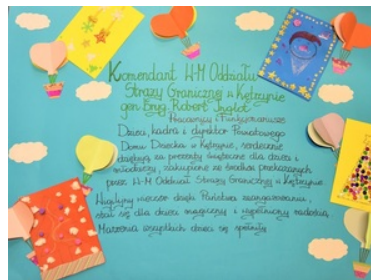 Komendant W-M Oddziału
Straży Granicznej w Kętrzynie
gen. bryg. Robert Inglot
Pracownicy i Funkcjonariusze
Dzieci, kadra i dyrektor Powiatowego
Domu Dziecka w Kętrzynie, serdecznie
dziękują za prezenty świąteczne dla dzieci i
młodzieży, zakupione ze środków przekazanych
przez W-M Oddział Straży Granicznej w Kętrzynie.
Wigilijny wieczór dzięki Państwa zaangażowaniu,
stał się dla dzieci magiczny i wypełniony radością.
Marzenia wszystkich dzieci się spełniły